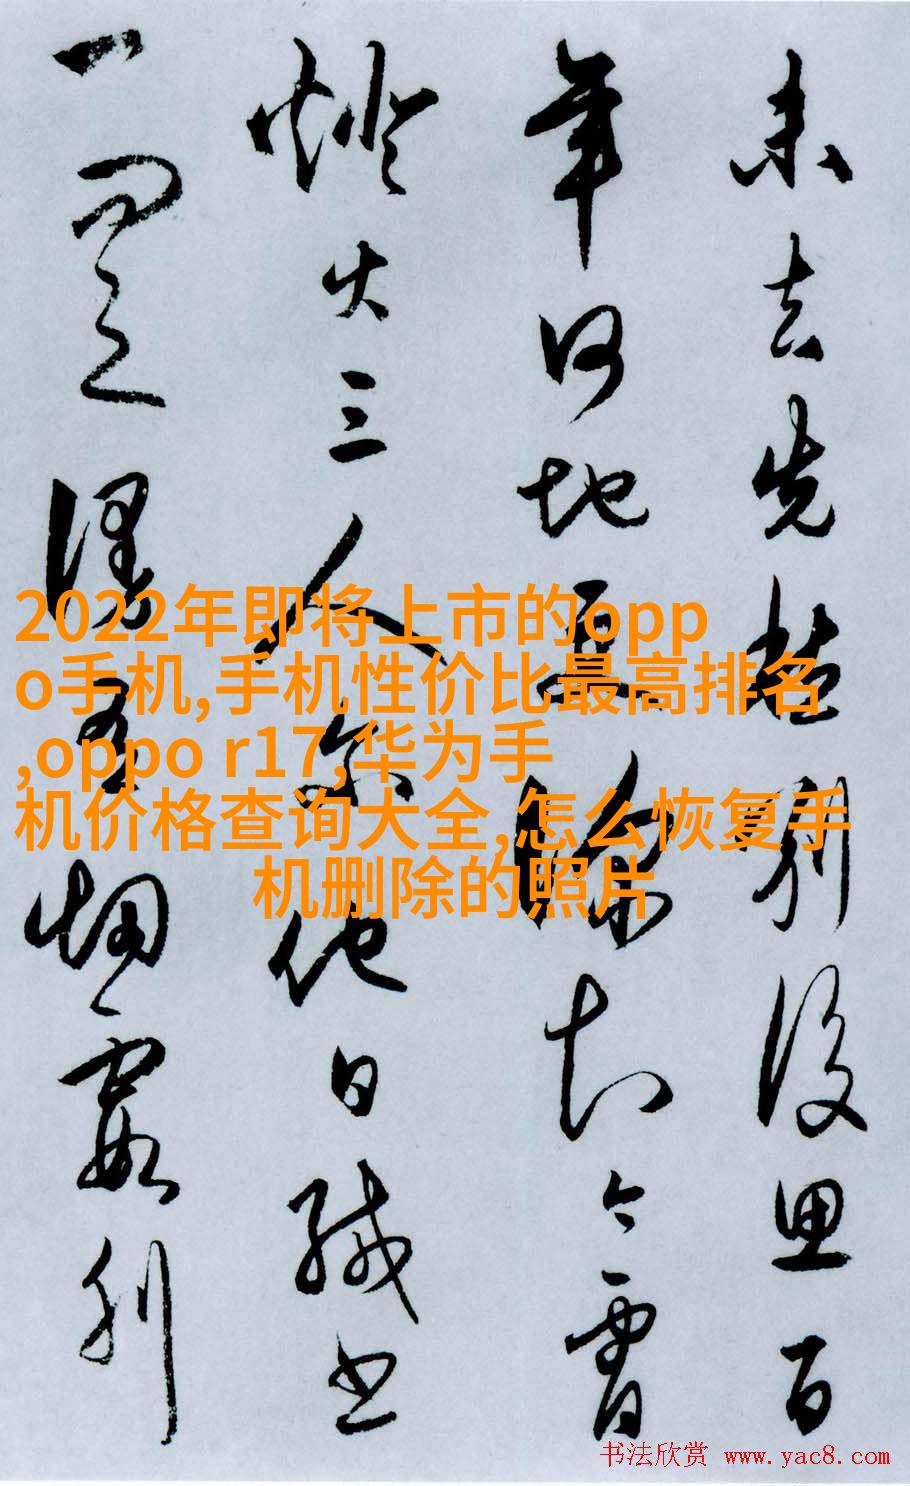 未去先愁别后思百
年何地更深知今宵
灯火三人尔他日缄书
一
烟霞列
2022年即将上市的opp
o手机,手机性价比最高排名
,oppo r17,华为手
机价格查询大全,怎么恢复手
机删除的照片
书法欣赏 www.yac8.com